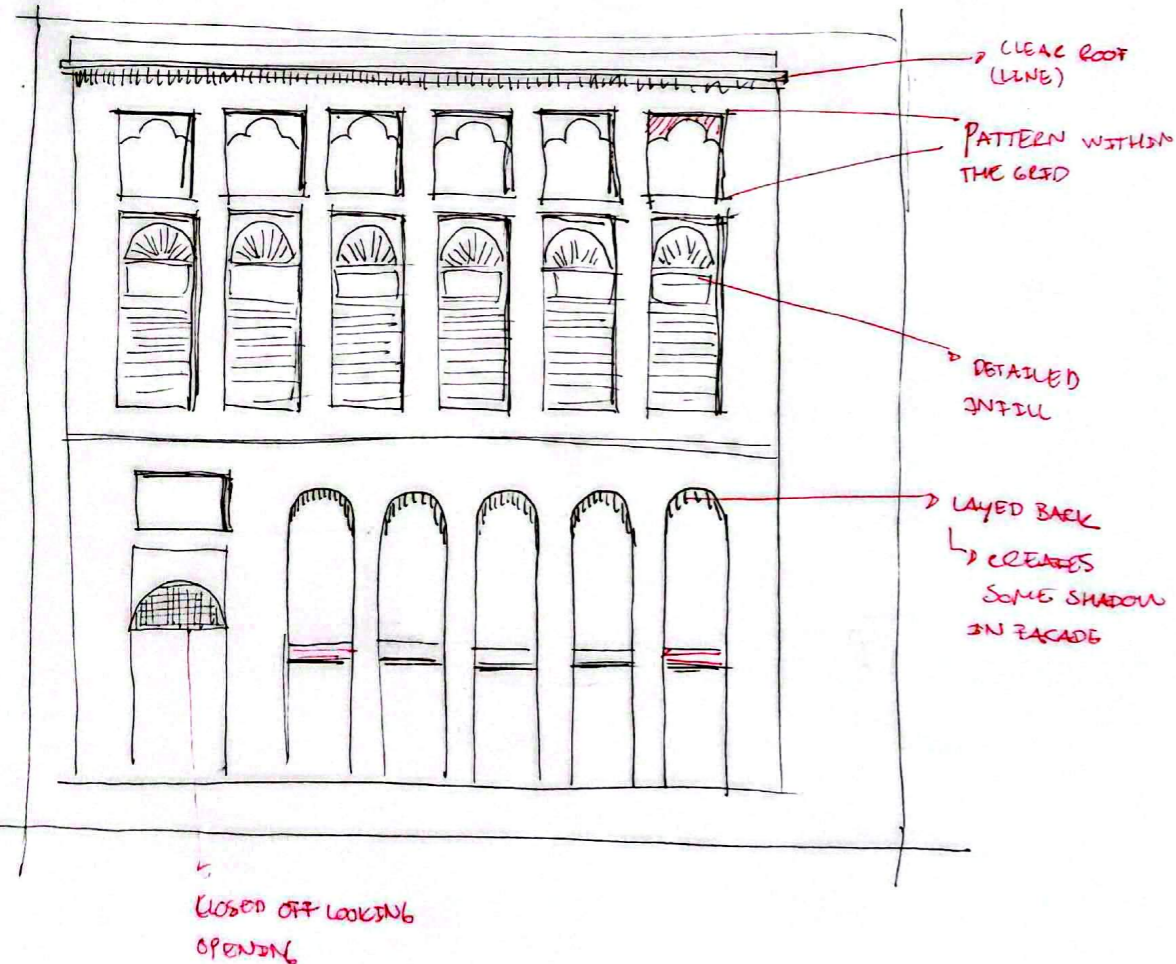 CLEAR ROOF
(LINE)
PATTERN WITHIN
THE GRID
DETAILED
INFILL
LAYED BACK
CREATES
SOME SHADOW
IN FACADE
CLOSED OFF LOOKING
OPENING